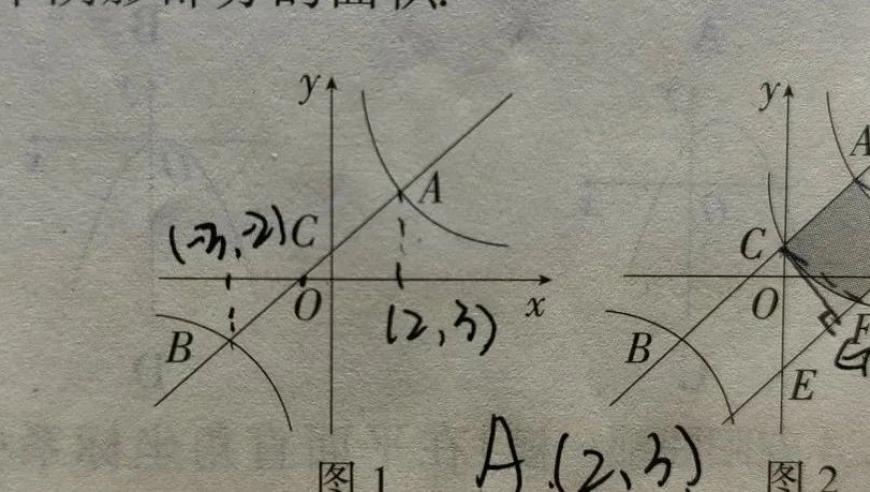 y
y
A
A
(-3,-2)
C
C
O
x
O
(2,3)
B
B
F
E
A(2,3)
图1
图2